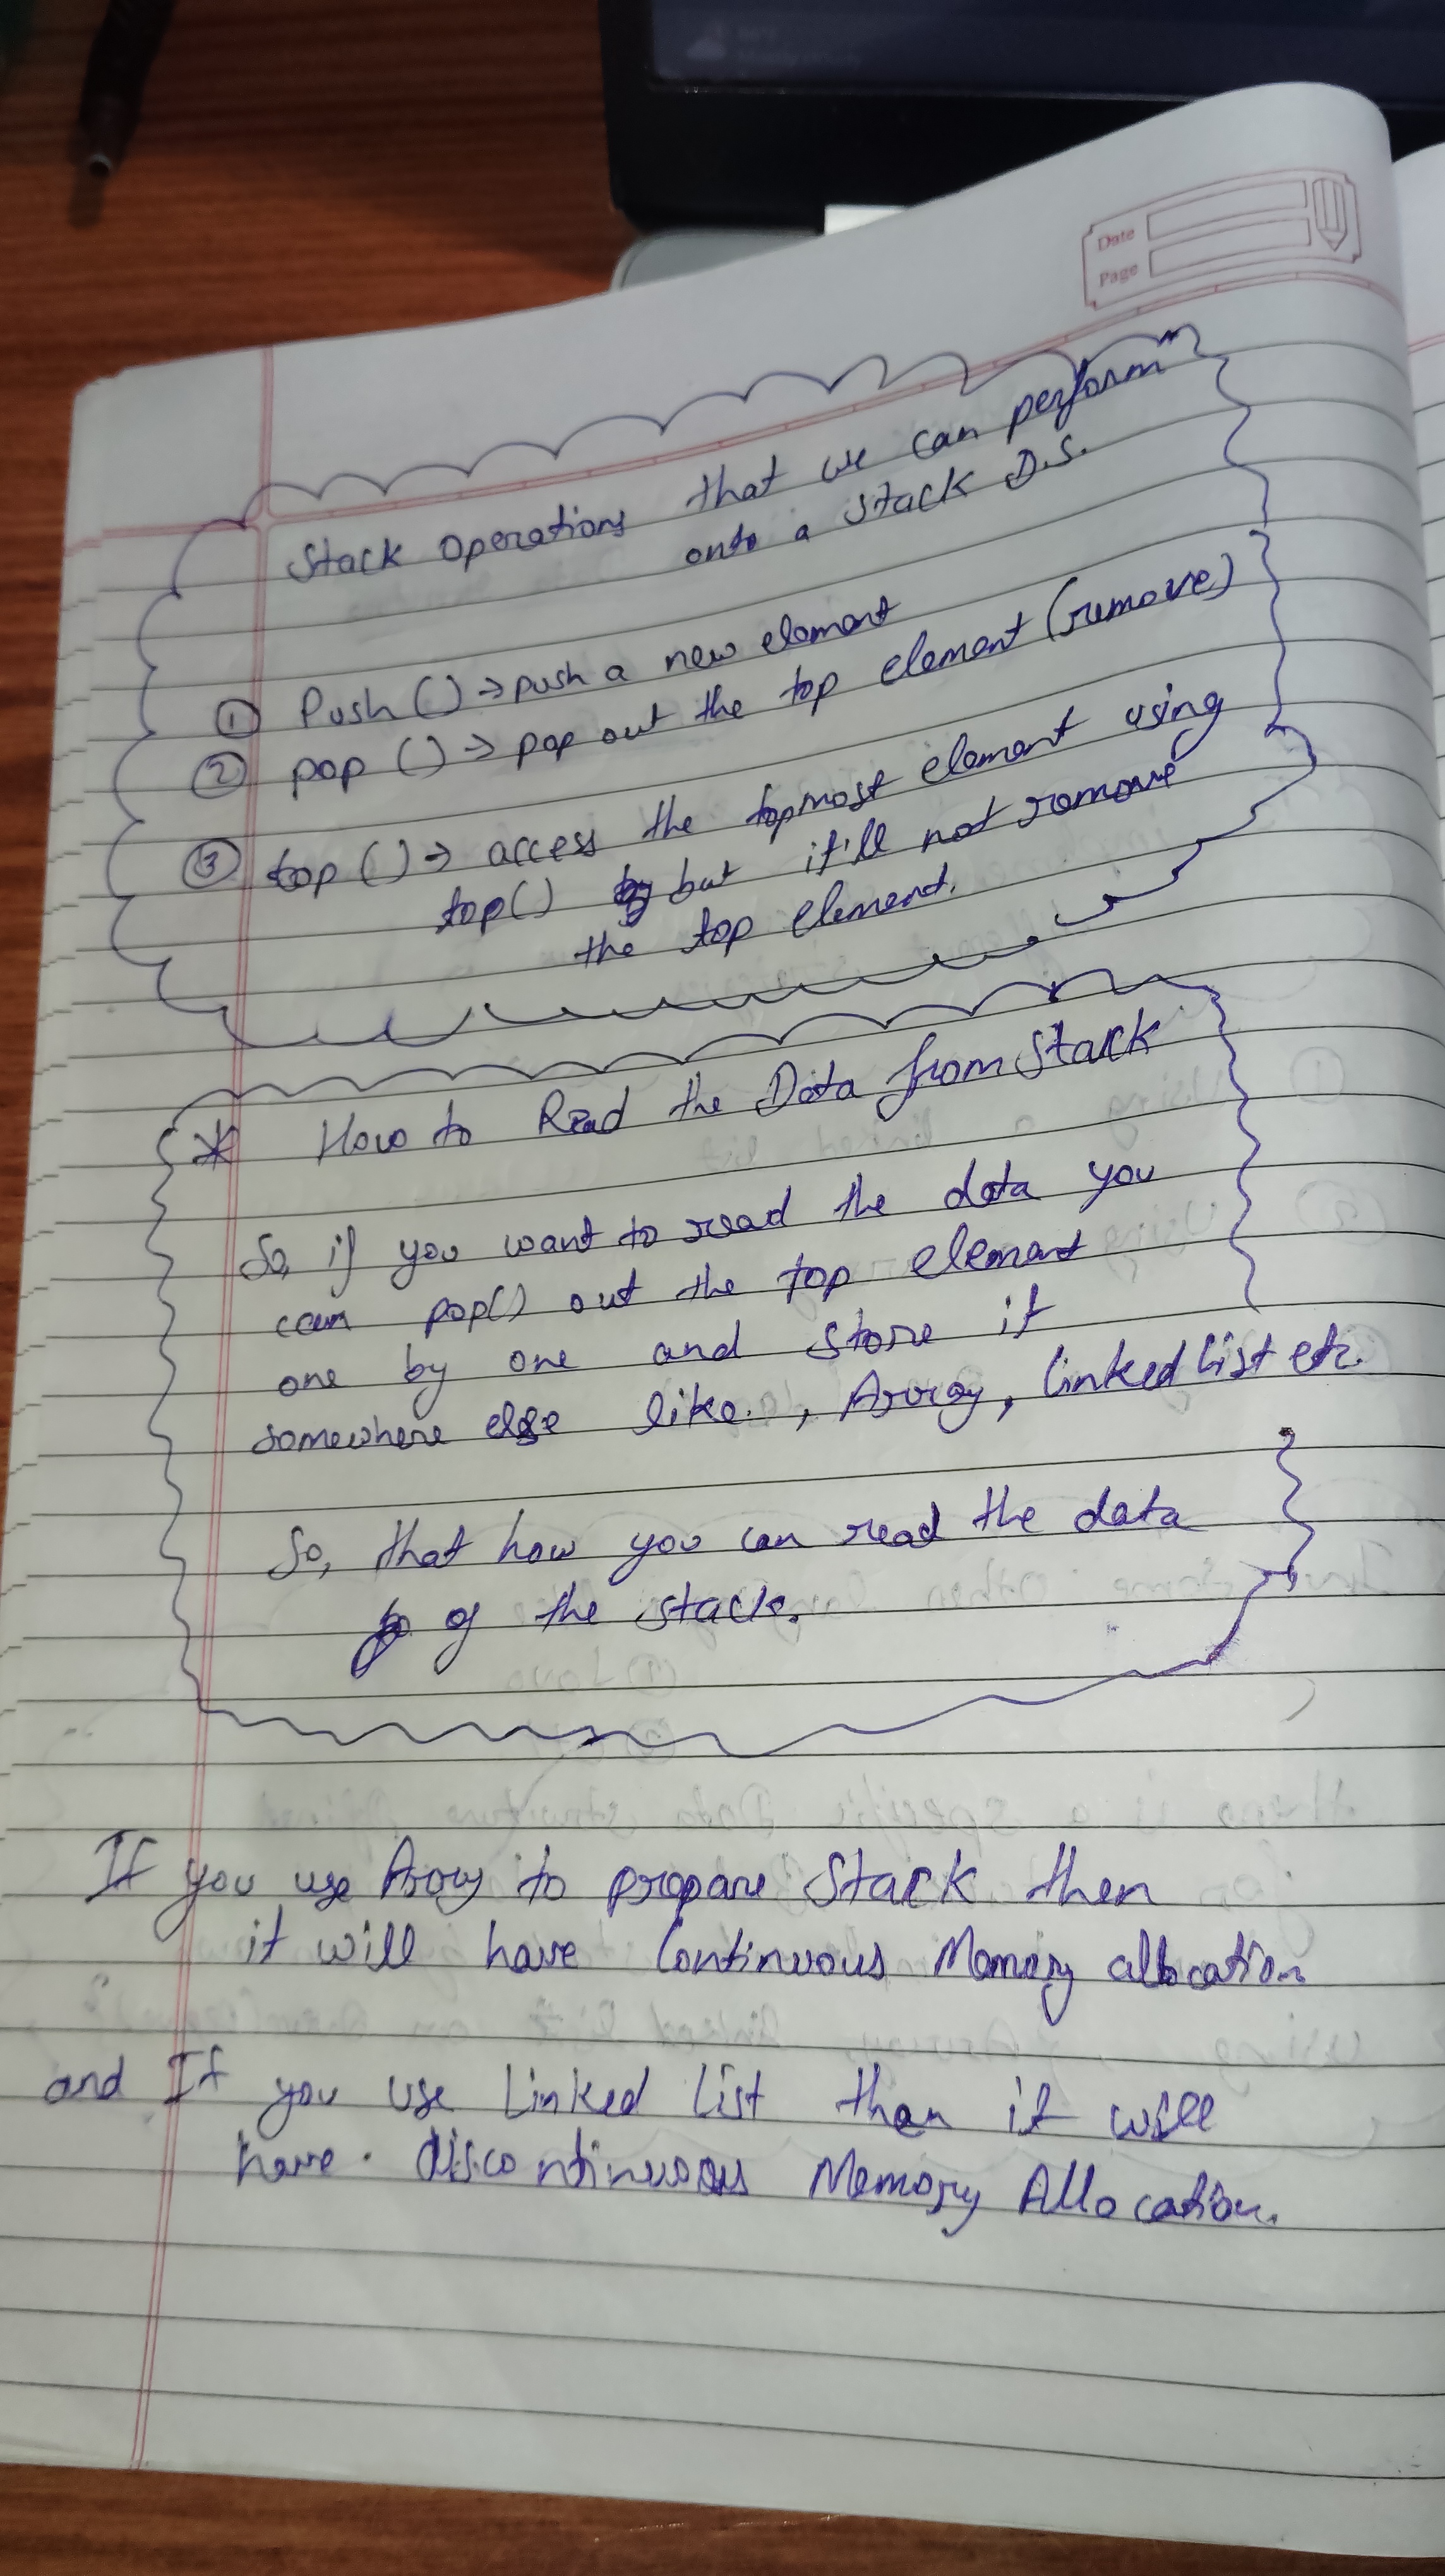 Date
Page
Stack Operations that we can perform
onto a Stack D.S.
① Push () → push a new element
② pop () → pop out the top element (remove)
③ top () → access the topmost element using
top() but it'll not remove
the top element.
* How to Read the Data from Stack
So, if you want to read the data you
can pop() out the top element
one by one and store it
somewhere else like. , Array, Linked List etc.
So, that how you can read the data
of the stack.
If you use Array to prepare Stack then
it will have Continuous Memory allocation
and If you use Linked List then it will
have. discontinuous Memory Allocation.